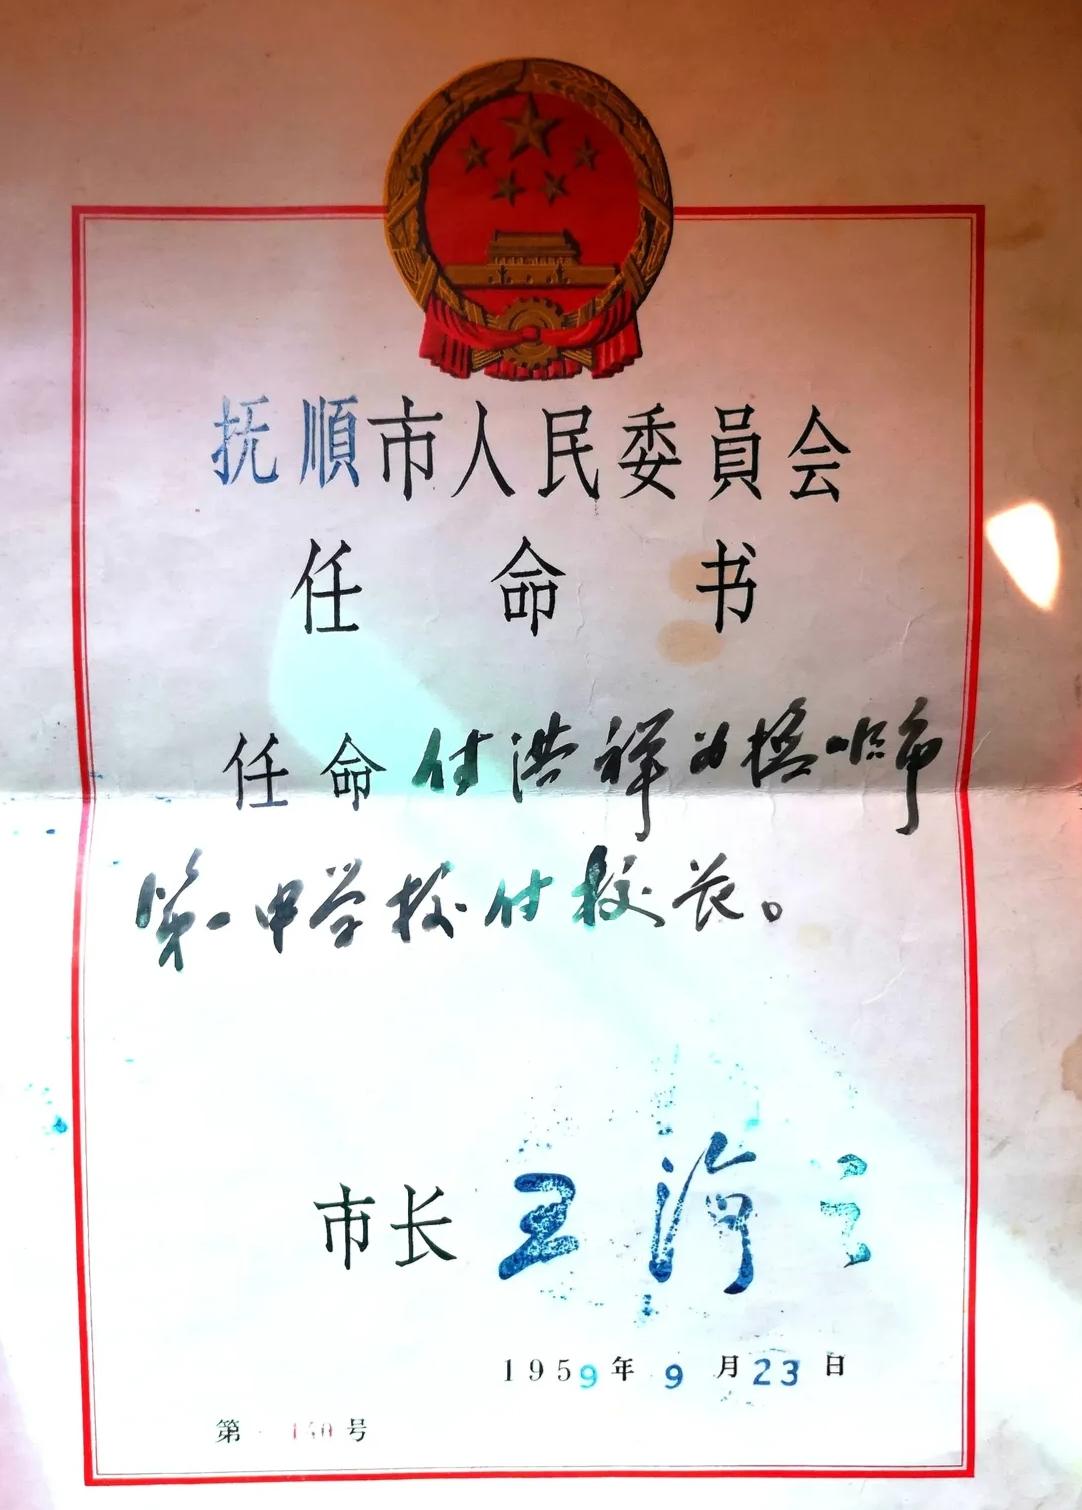 抚順市人民委員会
任命书
任命付洪祥为撫顺市
第一中学校付校长。
市长 王海之
1959年9月23日
第 150 号